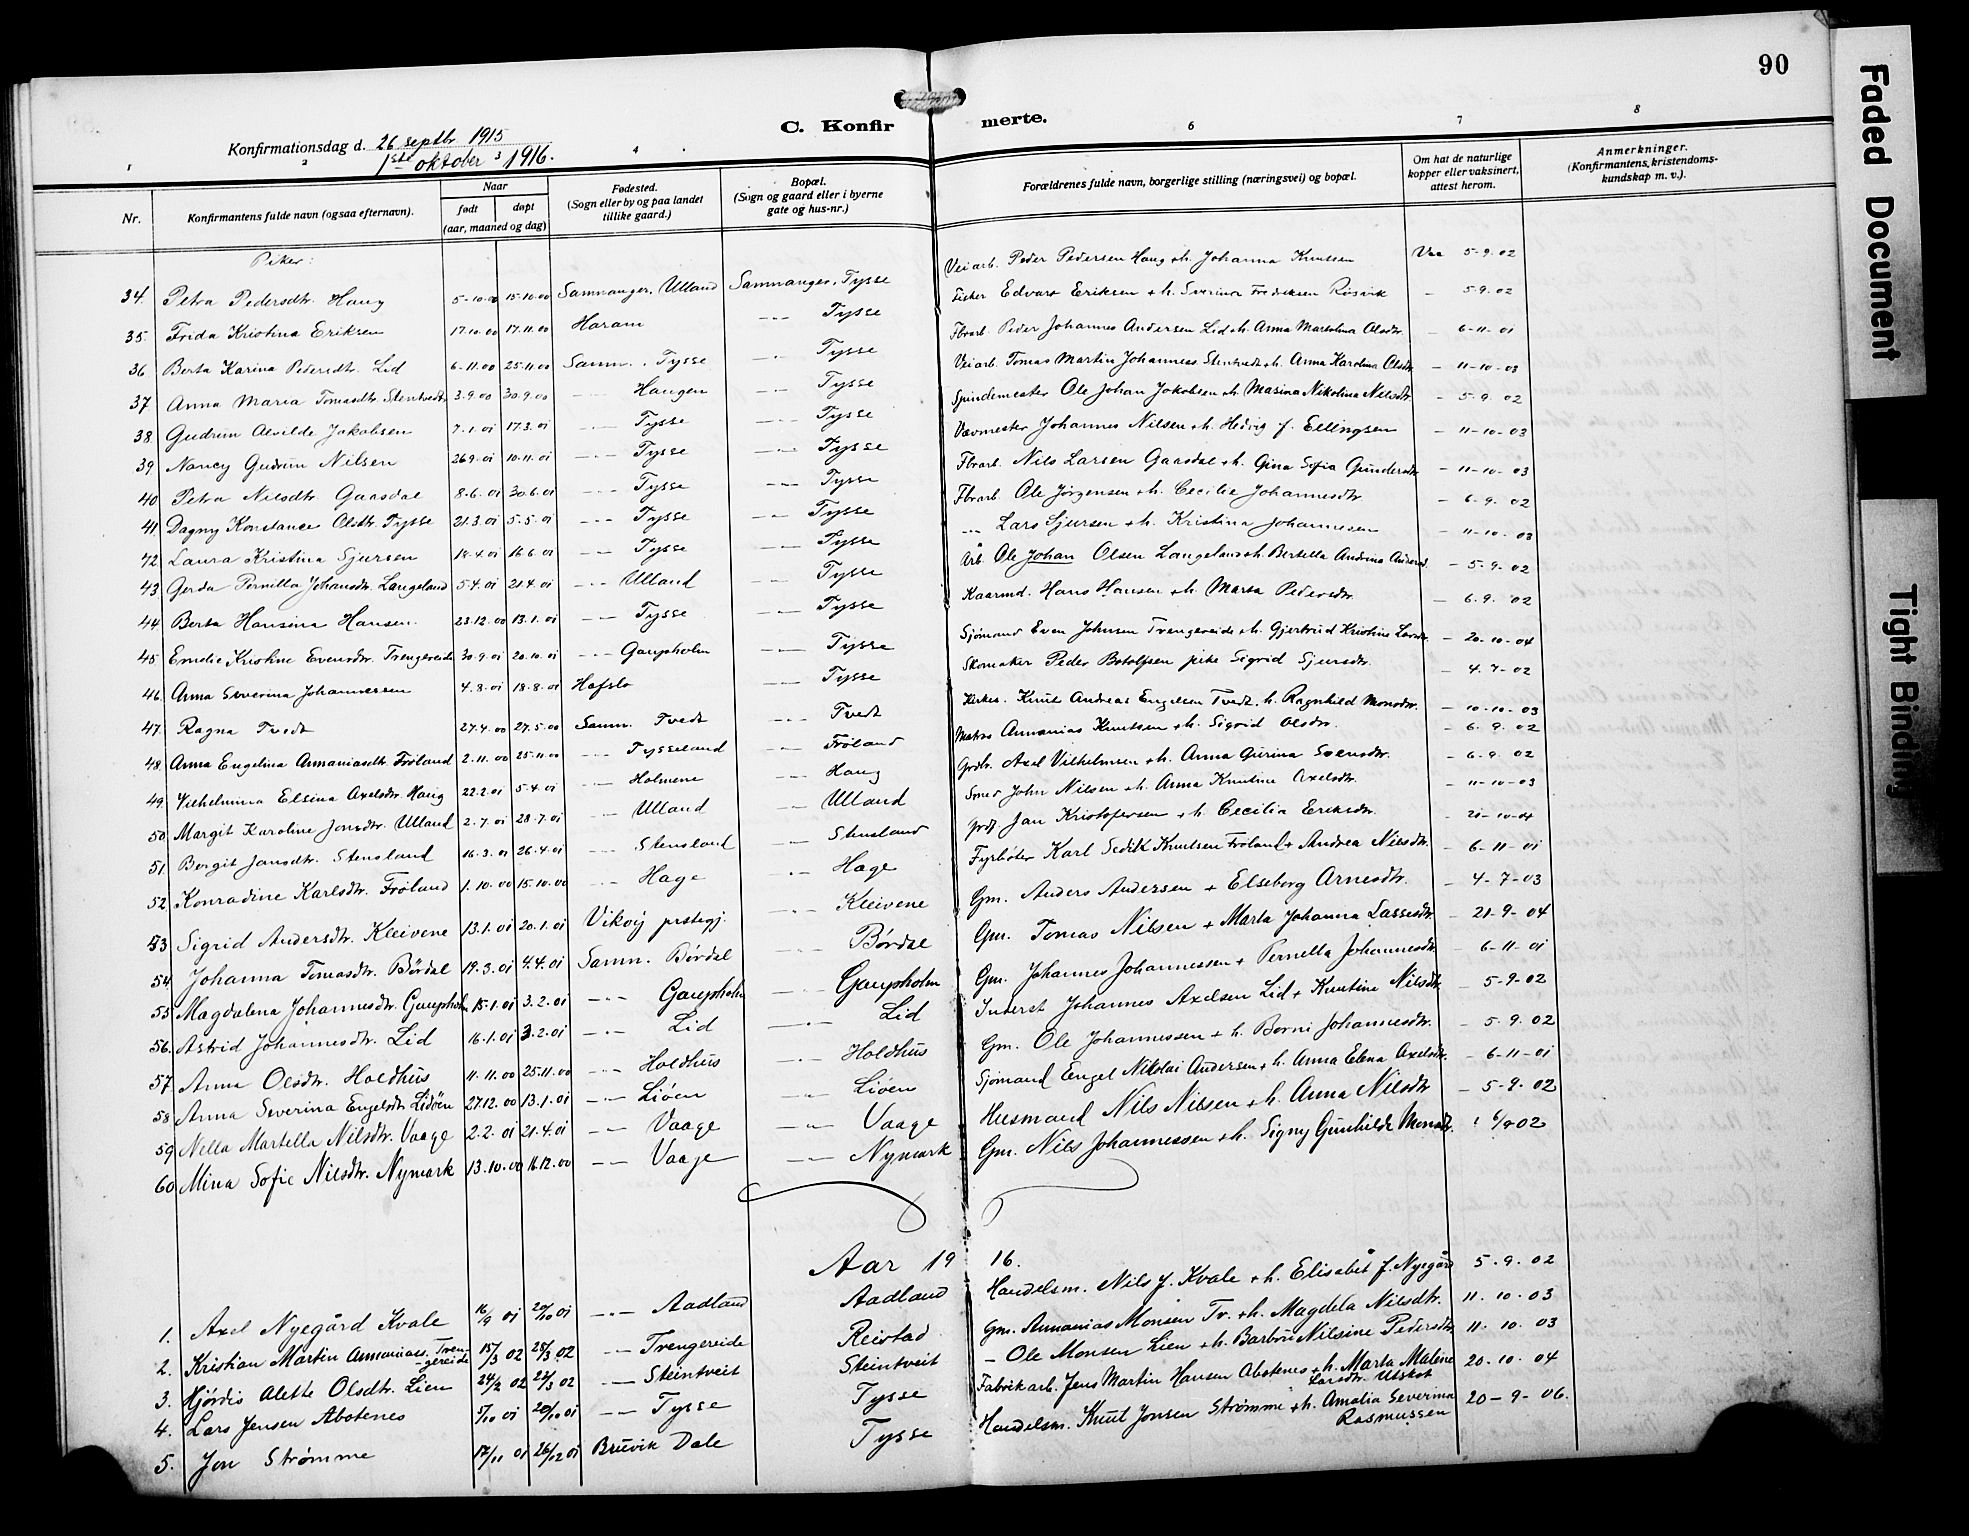 90
C. Konfirmerte.
Konfirmationsdag d. 26 septbr 1915
1ste oktober 1916.
1 2 3 4 6 7 8
Nr. Konfirmantens fulde navn (ogsaa efternavn). Naar født døpt (aar, maaned og dag) Fødested. (Sogn eller by og paa landet tillike gaard.) Bopæl. (Sogn og gaard eller i byerne gate og hus-nr.) Forældrenes fulde navn, borgerlige stilling (næringsvei) og bopæl. Om hat de naturlige kopper eller vaksinert, attest herom. Anmerkninger. (Konfirmantens, kristendomskundskap m. v.).
Piker:
34. Petra Pedersdtr. Haug 5-10-00 15-10-00 Samnanger, Ulland Samnanger, Tysse Veiarb. Peder Pedersen Haug + h. Johanna Knutsen Vac 5-9-02
35. Frida Kristina Eriksen 17.10.00 17.11.00 Haram -"- Tysse Fisker Edvart Eriksen + h. Severina Fredriksen Røsvik - 5.9.02
36 Berta Karina Pedersdtr. Lid 6-11.00 25.11.00 Samn. Tysse -"- Tysse Fbrarb. Peder Johannes Andersen Lid + h. Anna Martolina Olsdtr. - 6-11-01
37 Anna Maria Tomasdtr. Stentvedt 3.9.00 30.9.00 -"- Haugen -"- Tysse Veiarb. Tomas Martin Johannes Stentvedt + h. Anna Karolina Olsdtr - 11-10-03
38. Gudrun Alvilde Jakobsen 7.1.01 17.3.01 -"- Tysse -"- Tysse Spindemester Ole Johan Jakobsen + h. Masina Nikolina Nilsdtr. - 5.9.02
39. Nancy Gudrun Nilsen 26.9.01 10.11.01 -"- Tysse -"- Tysse Vævmester Johannes Nilsen + h. Hedvig f. Ellingsen - 11-10-03
40. Petra Nilsdtr. Gaasdal 8.6.01 30.6.01 -"- Tysse -"- Tysse Fbrarb. Nils Larsen Gaasdal + h. Gina Sofia Gundersdtr - 11-10-03
41. Dagny Konstance Olsdtr. Tysse 21.3.01 5.5.01 -"- Tysse -"- Tysse Fbrarb. Ole Jørgensen + h. Cecilia Johannesdtr - 6.9.02
42 Laura Kristina Sjursen 18.4.01 16.6.01 -"- Tysse -"- Tysse -"- Lars Sjursen + h. Kristina Johannesen - 11-10-03
43. Gerda Pernilla Johansdtr. Langeland 5.4.01 21.4.01 -"- Ulland -"- Tysse Arb. Ole Johan Olsen Langeland + h. Bertella Andrina Andersd. - 5.9.02
44. Berta Hansina Hansen. 23.12.00 13.1.01 -"- Tysse -"- Tysse Kaarmd. Hans Hansen + h. Marta Pedersdtr. - 6.9.02
45. Emelie Kristine Evensdtr. Trengereide 30.9.01 20.10.01 -"- Gaupholm -"- Tysse Sjømand Even Johnsen Trengereide + h. Gjertrud Kristine Larsdtr. - 20-10-04
46. Anna Severina Johannessen 4.8.01 18.8.01 Hafslo -"- Tysse Skomaker Peder Botolfsen pike Sigrid Sjursdtr. - 4.7-02
47. Ragna Tvedt 27.4.00 27.5.00 Samn. Tvedt -"- Tvedt Kirkes. Knut Andreas Engelsen Tvedt, h. Ragnhild Monsdtr. - 10-10-03
48. Anna Engelina Annaniasdtr. Frøland 2.11.00 25.11.00 -"- Tysseland -"- Frøland Matros Annanias Knutsen + h. Sigrid Olsdtr. - 6.9.02
49. Vilhelmina Elsina Axelsdtr. Haug 22.2.01 5.4.01 -"- Holmene -"- Haug Grdbr. Axel Vilhelmsen + h. Anna Gurina Svensdtr. - 6-9.02
50. Margit Karoline Jonsdtr. Ulland 2.7.01 28.7.01 Ulland -"- Ulland Smed John Nilsen + h. Anna Knutine Axelsdtr. - 11-10-03
51. Borgit Jansdtr. Stensland 16.3.01 26.4.01 -"- Stensland -"- Stensland Jan Kristofersen + h. Cecilia Eriksdtr. - 20-10-04
52. Konradine Karlsdtr. Frøland 1.10.00 15.10.00 -"- Hage -"- Hage Fyrbøter Karl Sedik Knutsen Frøland + Andrea Nilsdtr. - 6-11-01
53 Sigrid Andersdtr. Kleivene 13.1.01 20.1.01 Vikøy prstegj. -"- Kleivene Gm. Anders Andersen + Elseborg Arnesdtr. - 4-7-03
54 Johanna Tomasdtr. Børdal 19.3.01 4.4.01 Samn. Børdal -"- Børdal Gm. Tomas Nilsen + Marta Johanna Lassesdtr. - 21-9-04
55 Magdalena Johannesdtr. Gaupholm 15.1.01 3.2.01 -"- Gaupholm -"- Gaupholm Gm. Johannes Johannessen + Pernella Johannesdtr - 6-11-01
56. Astrid Johannesdtr. Lid 16.1.01 3.2.01 -"- Lid -"- Lid Inderst Johannes Axelsen Lid + Knutine Nilsdtr. - 5-9-02
57 Anna Olsdtr. Holdhus 11.11.00 25.11.00 -"- Holdhus -"- Holdhus Gm. Ole Johannessen + h. Borni Johannesdtr. - 5.9.02
58 Anna Severina Engelsdtr. Lidøen 27.12.00 13.1.01 -"- Liøen -"- Liøen Sjømand Engel Nikolai Andersen + h. Anna Elena Axelsdtr. - 6-11-01
59 Nella Martella Nilsdtr. Vaage 2.2.01 21.4.01 -"- Vaage -"- Vaage Husmand Nils Nilsen + h. Anna Nilsdtr - 5-9.02
60 Mina Sofie Nilsdtr. Nymark 13.10.00 16.12.00 -"- Vaage -"- Nymark Gm. Nils Johannessen + h. Signy Gunhilde Monsdtr. 6/9 02
Aar 1916.
1. Axel Nyegård Kvale 16/9 01 20/10 01 -"- Aadland Aadland Handelsm. Nils J. Kvale + h. Elisabet f. Nyegård 5.9.02
2. Kristian Martin Annanias. Trengereide 15/3 02 28/3 02 -"- Trengereide Reistad Gm. Annanias Monsen Tr. + h. Magdela Nilsdtr. 11.10.03
3. Hjørdis Alette Olsdtr. Lien 24/2 02 23/3 02 -"- Steintveit Steintveit - Ole Monsen Lien + h. Barbru Nilsine Pedersdtr 11.10.03
4. Lars Jensen Abotenes 5/10 01 20/10 01 -"- Tysse Tysse Fabrikarb. Jens Martin Hansen Abotenes + h. Marta Maline Larsdtr. Utskot 20-10.04
5. Jon Strømme 17/11 01 26/12 01 Bruvik Dale Tysse Handelsm. Knut Jonsen Strømme + h. Amalia Severina Rasmussen 20-9-06.
Faded Document
Tight Binding